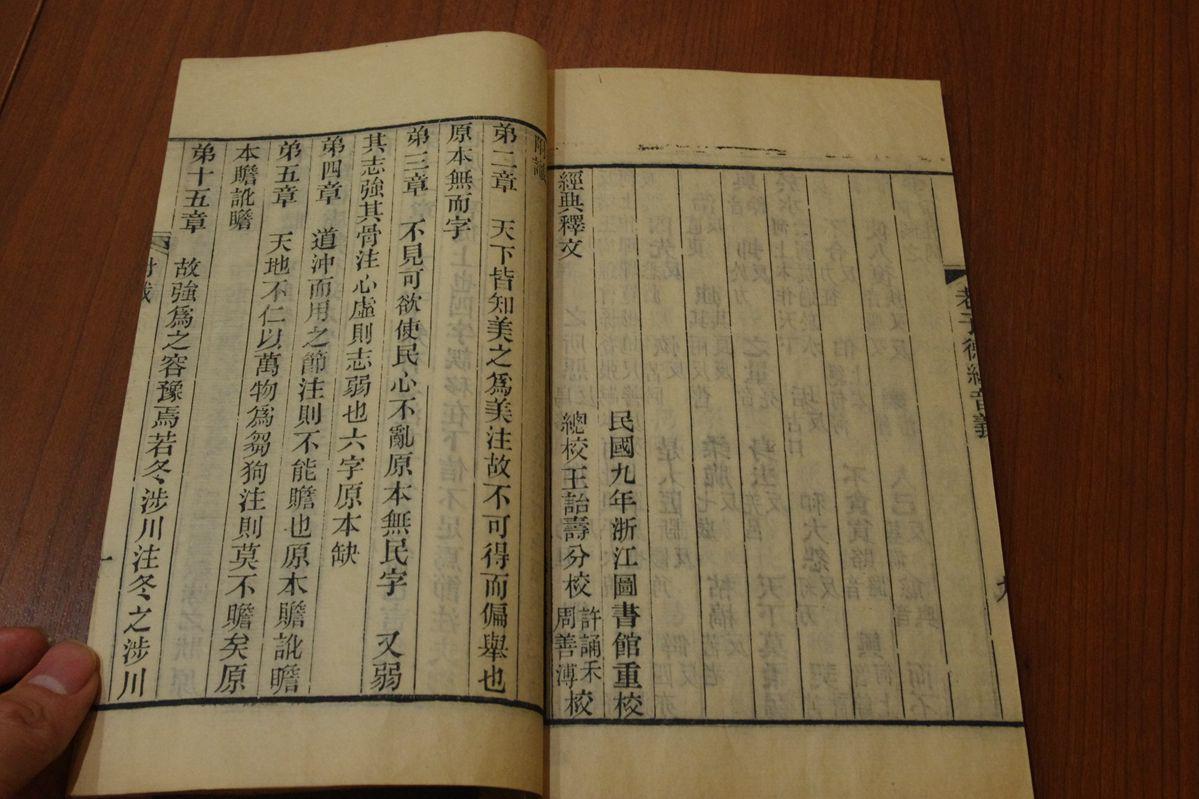 老子德經音義
九
民國九年浙江圖書館重校
經典釋文 總校王詒壽分校 許誦禾 周善溥 校
弟二章 天下皆知美之爲美注故不可得而偏舉也
原本無而字
弟三章 不見可欲使民心不亂原本無民字 又弱
其志強其骨注心虛則志弱也六字原本缺
弟四章 道沖而用之節注則不能贍也原本贍訛瞻
弟五章 天地不仁以萬物爲芻狗注則莫不贍矣原
本贍訛瞻
弟十五章 故強爲之容豫焉若冬涉川注冬之涉川
一